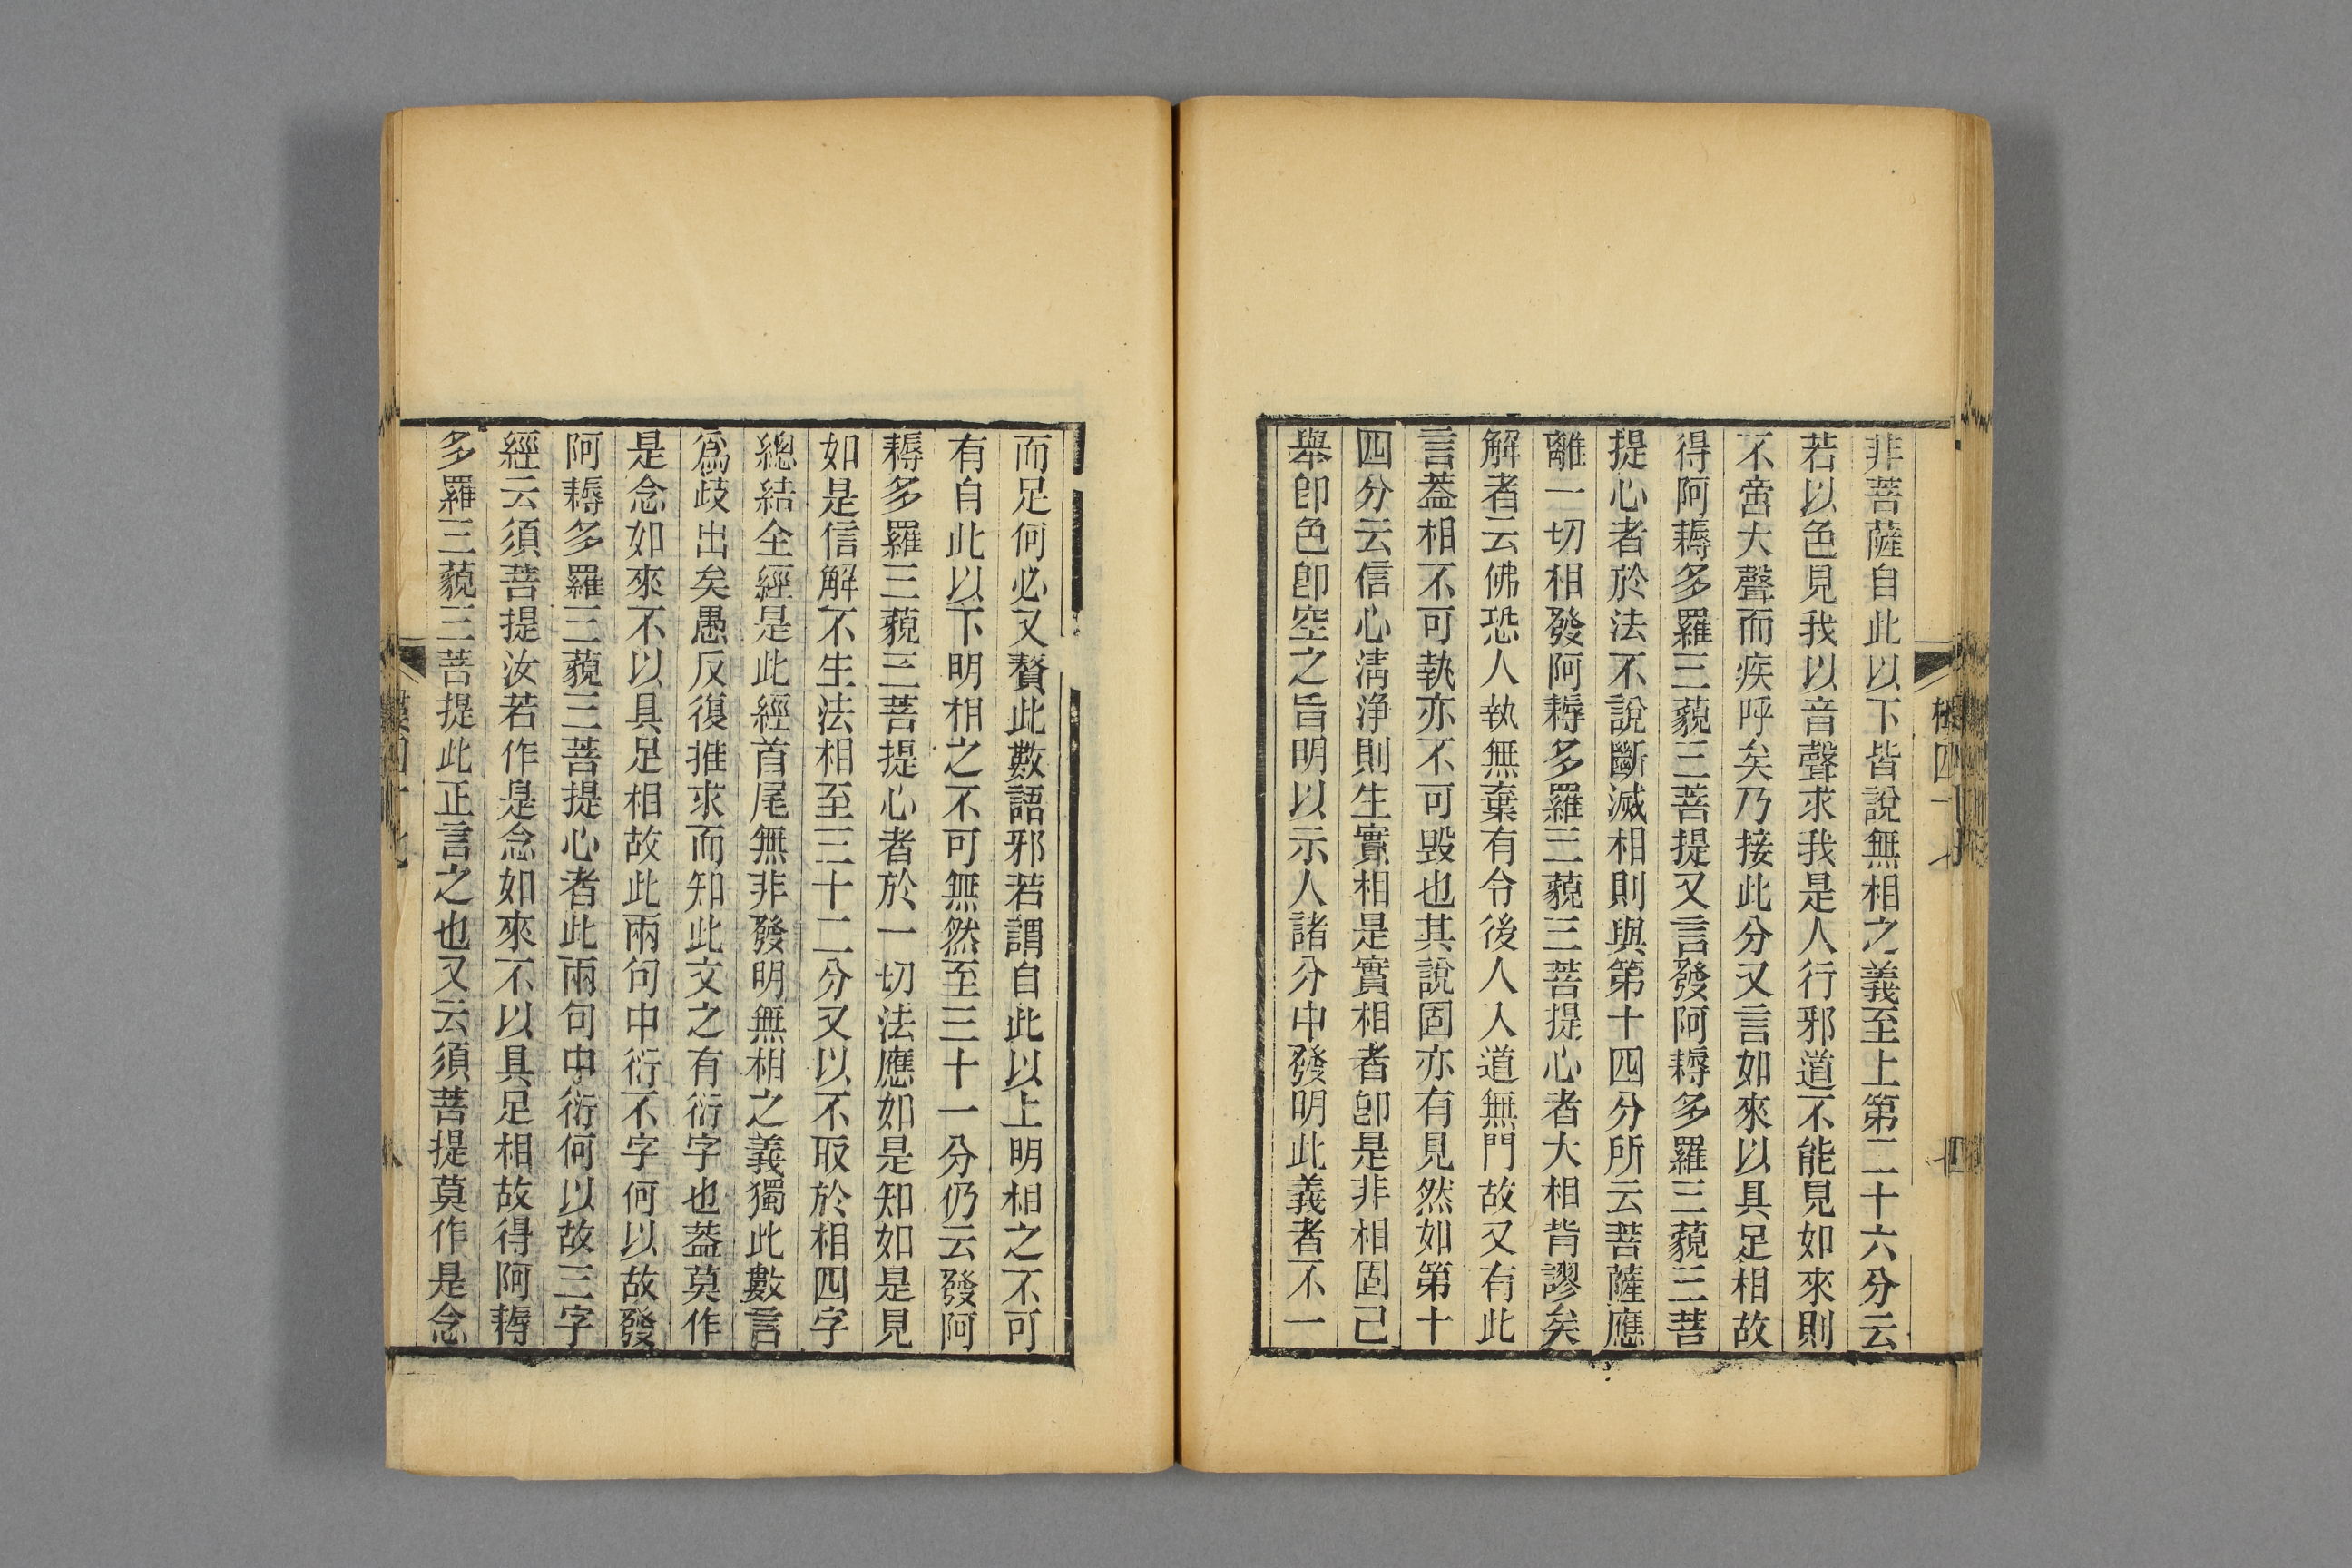 非菩薩自此以下皆說無相之義至上第二十六分云
若以色見我以音聲求我是人行邪道不能見如來則
不啻大聲而疾呼矣乃接此分又言如來以具足相故
得阿耨多羅三藐三菩提又言發阿耨多羅三藐三菩
提心者於法不說斷滅相則與第十四分所云菩薩應
離一切相發阿耨多羅三藐三菩提心者大相背謬矣
解者云佛恐人執無棄有令後人入道無門故又有此
言蓋相不可執亦不可毀也其說固亦有見然如第十
四分云信心淸淨則生實相是實相者卽是非相固己
舉卽色卽空之旨明以示人諸分中發明此義者不一
而足何必又贅此數語邪若謂自此以上明相之不可
有自此以下明相之不可無然至三十一分仍云發阿
耨多羅三藐三菩提心者於一切法應如是知如是見
如是信解不生法相至三十二分又以不取於相四字
總結全經是此經首尾無非發明無相之義獨此數言
爲歧出矣愚反復推求而知此文之有衍字也蓋莫作
是念如來不以具足相故此兩句中衍不字何以故發
阿耨多羅三藐三菩提心者此兩句中衍何以故三字
經云須菩提汝若作是念如來不以具足相故得阿耨
多羅三藐三菩提此正言之也又云須菩提莫作是念